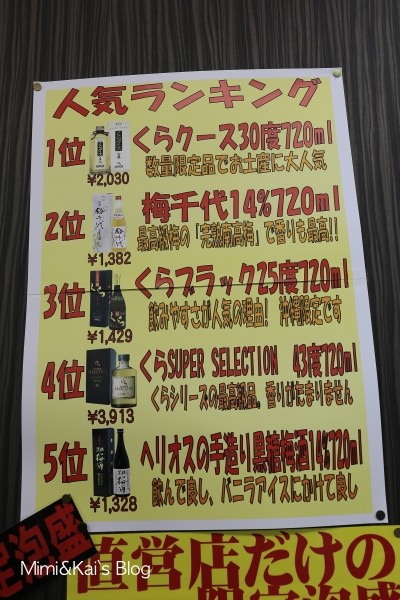 人気ランキング
1位 くらクース30度720ml
数量限定品でお土産に大人気
¥2,030
2位 梅千代14%720ml
最高級梅の「完熟南高梅」で香りも最高!!
¥1,382
3位 くらブラック25度720ml
飲みやすさが人気の理由! 沖縄限定です
¥1,429
4位 くらSUPER SELECTION 43度720ml
くらシリーズの最高級品。香りがたまりません
¥3,913
5位 ヘリオスの手造り黒糖梅酒14%720ml
飲んで良し、バニラアイスにかけて良し
¥1,328
泡盛
直営店だけの
限定泡盛
Mimi&Kai`s Blog